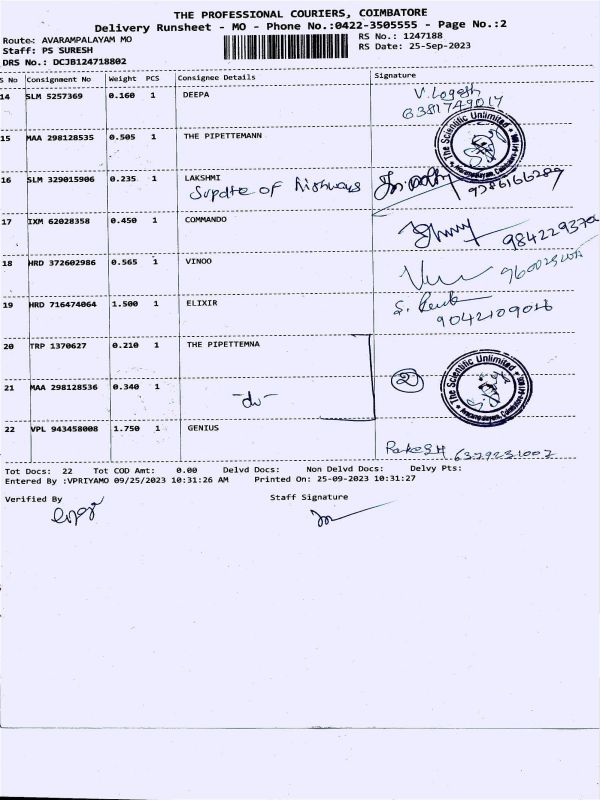 THE PROFESSIONAL COURIERS, COIMBATORE
Delivery Runsheet - MO - Phone No.:0422-3505555 - Page No.:2
Route: AVARAMPALAYAM MO RS No.: 1247188
Staff: PS SURESH RS Date: 25-Sep-2023
DRS No.: DCJB124718802
S No Consignment No Weight PCS Consignee Details Signature
14 SLM 5257369 0.160 1 DEEPA V. Logesh
6381749017
15 MAA 298128535 0.505 1 THE PIPETTEMANN The Scientific Unlimited
16 SLM 329015906 0.235 1 LAKSHMI
Supdte of Highways
17 IXM 62028358 0.450 1 COMMANDO
18 HRD 372602986 0.565 1 VINOO
19 HRD 716474064 1.500 1 ELIXIR
9042109018
20 TRP 1370627 0.210 1 THE PIPETTEMNA
21 MAA 298128536 0.340 1 -do- 2 The Scientific Unlimited
22 VPL 943458008 1.750 1 GENIUS
Rakesh 6379231007
Tot Docs: 22 Tot COD Amt: 0.00 Delvd Docs: Non Delvd Docs: Delvy Pts:
Entered By :VPRIYAMO 09/25/2023 10:31:26 AM Printed On: 25-09-2023 10:31:27
Verified By Staff Signature